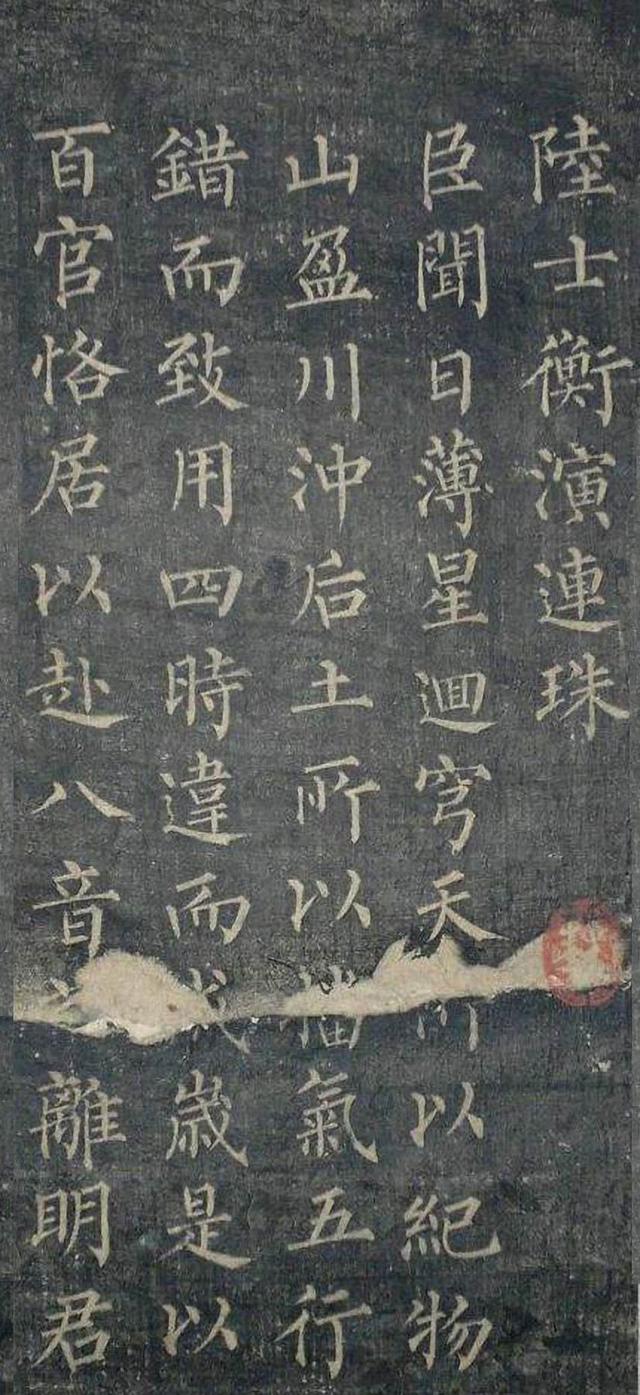 陸士衡演連珠
臣聞日薄星迴穹天以紀物
山盈川沖后土所以播氣五行
錯而致用四時違而成歳是以
百官恪居以赴八音離明君